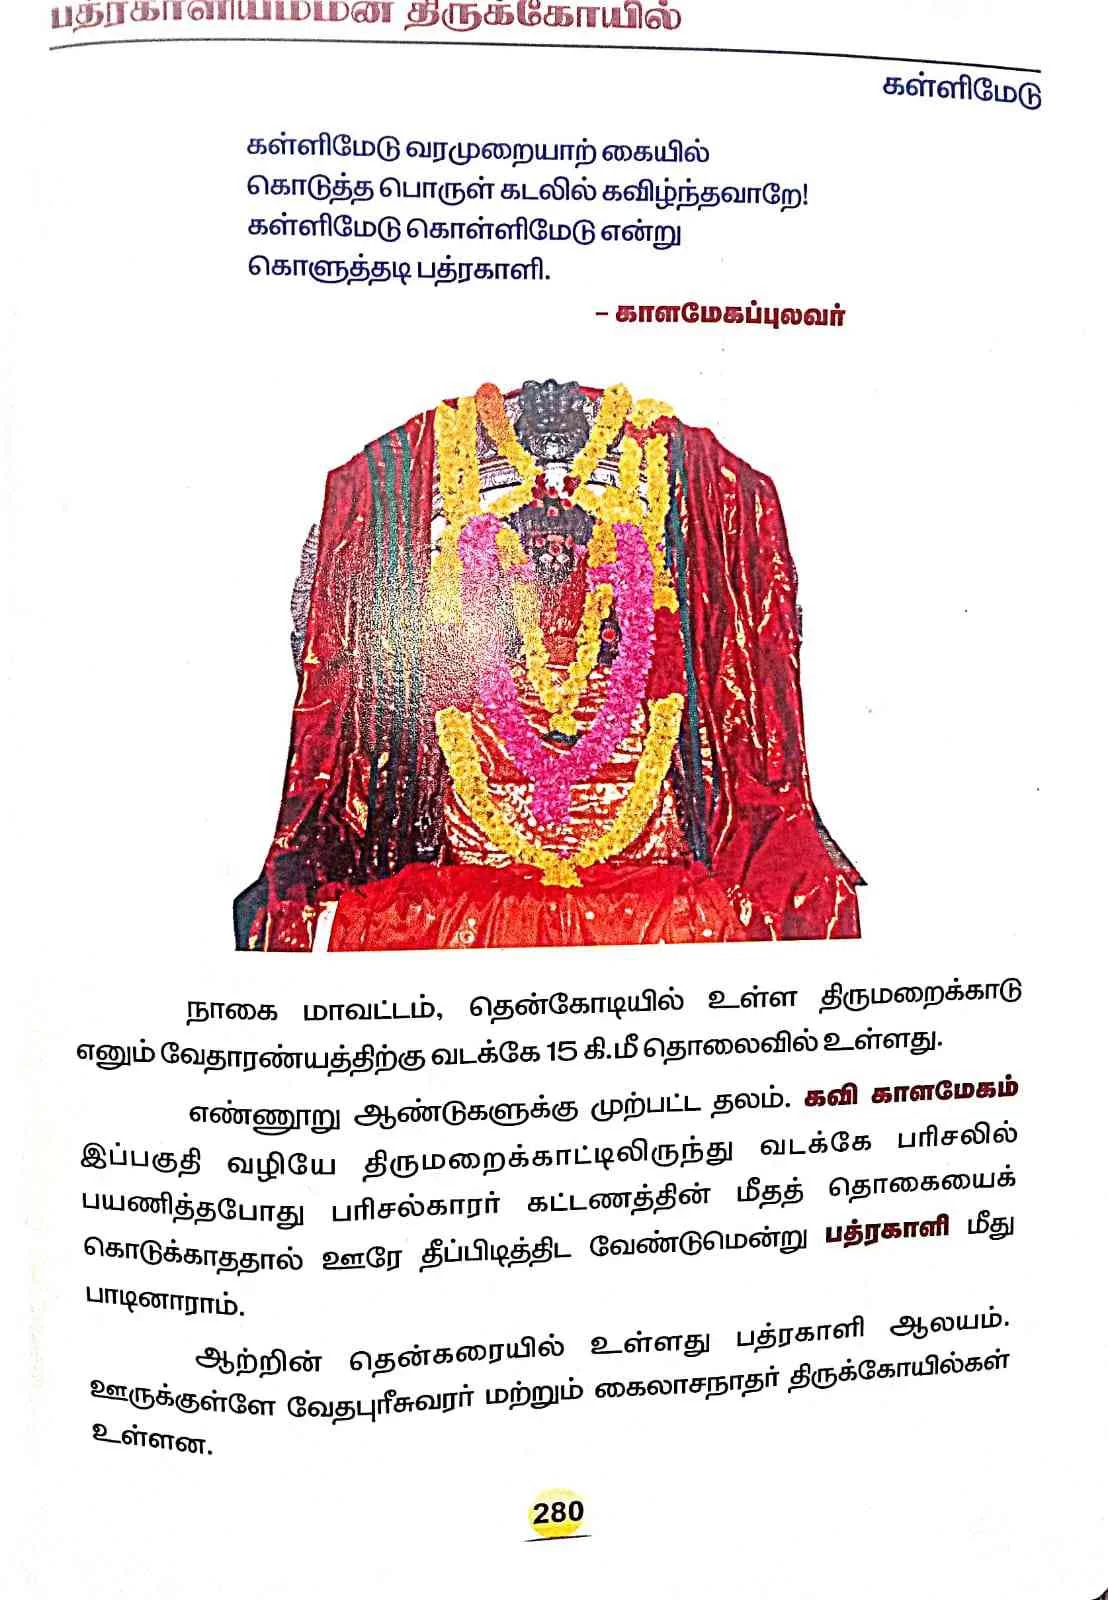 பத்ரகாளியம்மன் திருக்கோயில்
கள்ளிமேடு
கள்ளிமேடு வரமுறையாற் கையில்
கொடுத்த பொருள் கடலில் கவிழ்ந்தவாறே!
கள்ளிமேடு கொள்ளிமேடு என்று
கொளுத்தடி பத்ரகாளி.
– காளமேகப்புலவர்
நாகை மாவட்டம், தென்கோடியில் உள்ள திருமறைக்காடு
எனும் வேதாரண்யத்திற்கு வடக்கே 15 கி.மீ தொலைவில் உள்ளது.
எண்ணூறு ஆண்டுகளுக்கு முற்பட்ட தலம். கவி காளமேகம்
இப்பகுதி வழியே திருமறைக்காட்டிலிருந்து வடக்கே பரிசலில்
பயணித்தபோது பரிசல்காரர் கட்டணத்தின் மீதத் தொகையைக்
கொடுக்காததால் ஊரே தீப்பிடித்திட வேண்டுமென்று பத்ரகாளி மீது
பாடினாராம்.
ஆற்றின் தென்கரையில் உள்ளது பத்ரகாளி ஆலயம்.
ஊருக்குள்ளே வேதபுரீசுவரர் மற்றும் கைலாசநாதர் திருக்கோயில்கள்
உள்ளன.
280